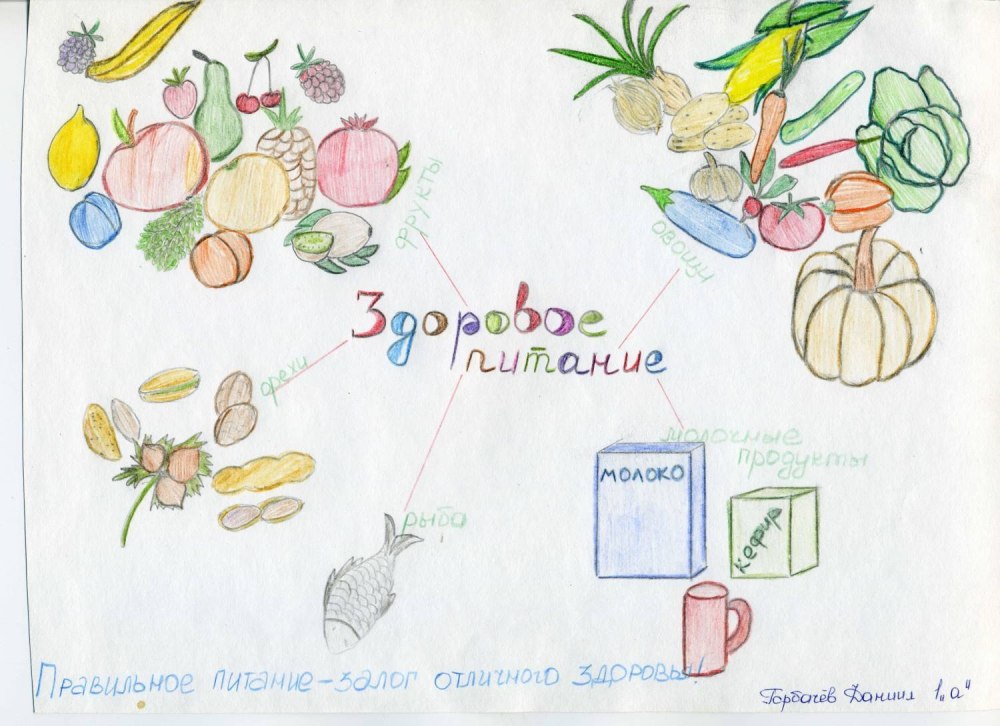 фрукты
овощи
Здоровое
питание
орехи
молочные
продукты
МОЛОКО
кефир
рыба
Правильное питание – залог отличного здоровья!
Горбачёв Даниил 1 „а“